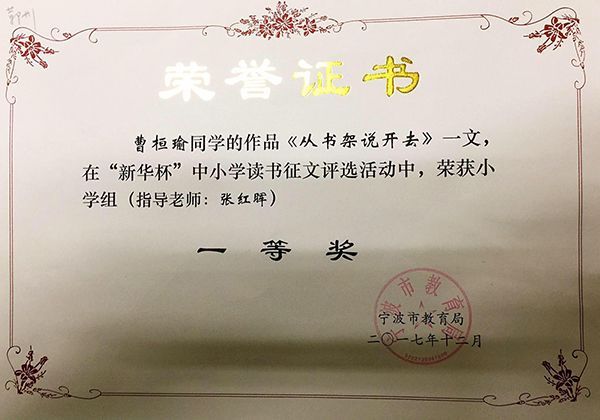 鄞州
荣誉证书
曹桓瑜同学的作品《从书架说开去》一文，
在“新华杯”中小学读书征文评选活动中，荣获小
学组（指导老师：张红晖）
一等奖
宁波市教育局
宁波市教育局
二〇一七年十二月